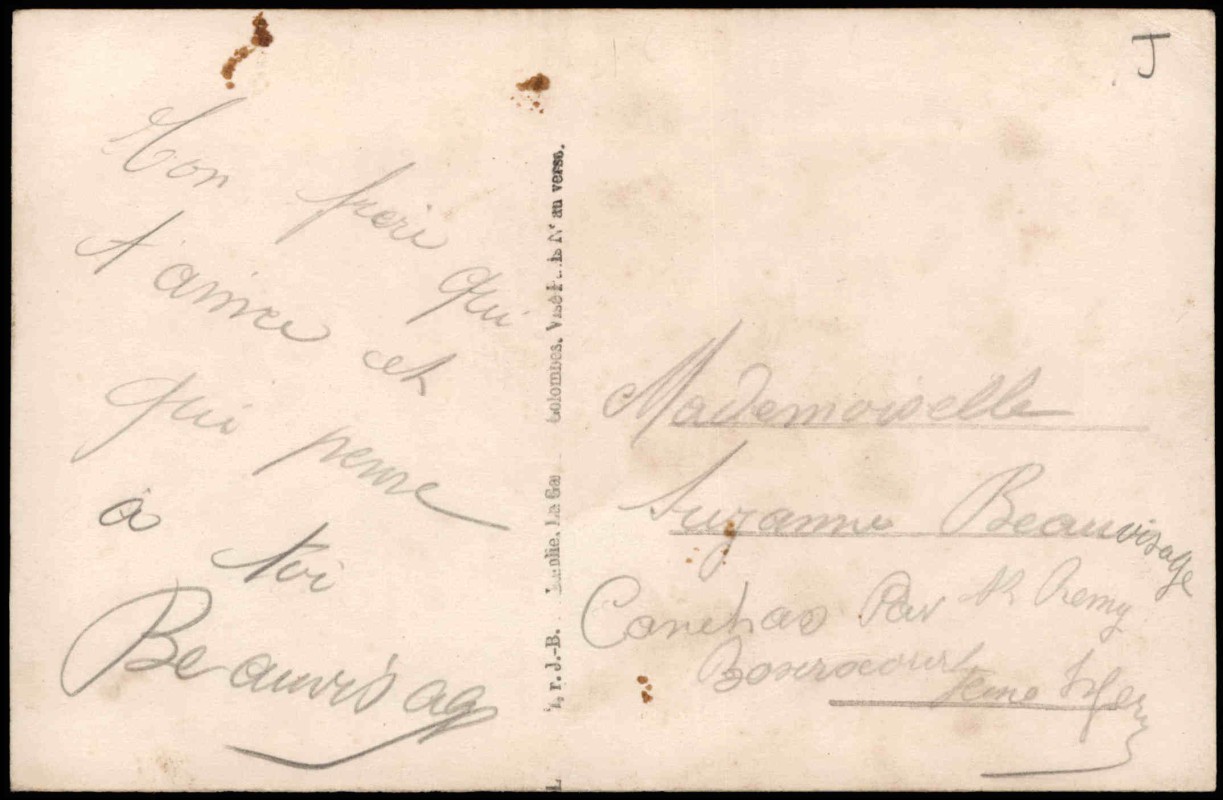 Ton frere qui
t'aime et
qui pense
à toi
Beauvisag
J.-B. La Ga Colombes. Visé N° au verso.
J
Mademoiselle
Suzanne Beauvisage
Canehan Par St Remy
Boscrocourt
Seine Infery